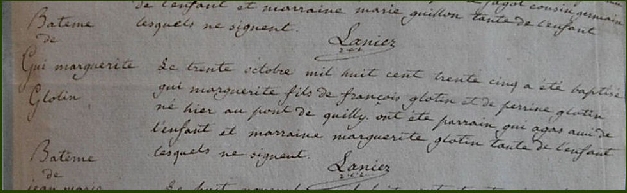 de l'enfant et marraine marie guillon tante de l'enfant
lesquels ne signent.
Laniez
Bateme
de
Gui marguerite
Glotin
Le trente octobre mil huit cent trente cinq a été baptisé
gui marguerite fils de françois glotin et de perrine glotin
né hier au pont de quilly. ont été parrain gui agas ami de
l'enfant et marraine marguerite glotin tante de l'enfant
lesquels ne signent.
Laniez
Bateme
de
jean marie
Le huit